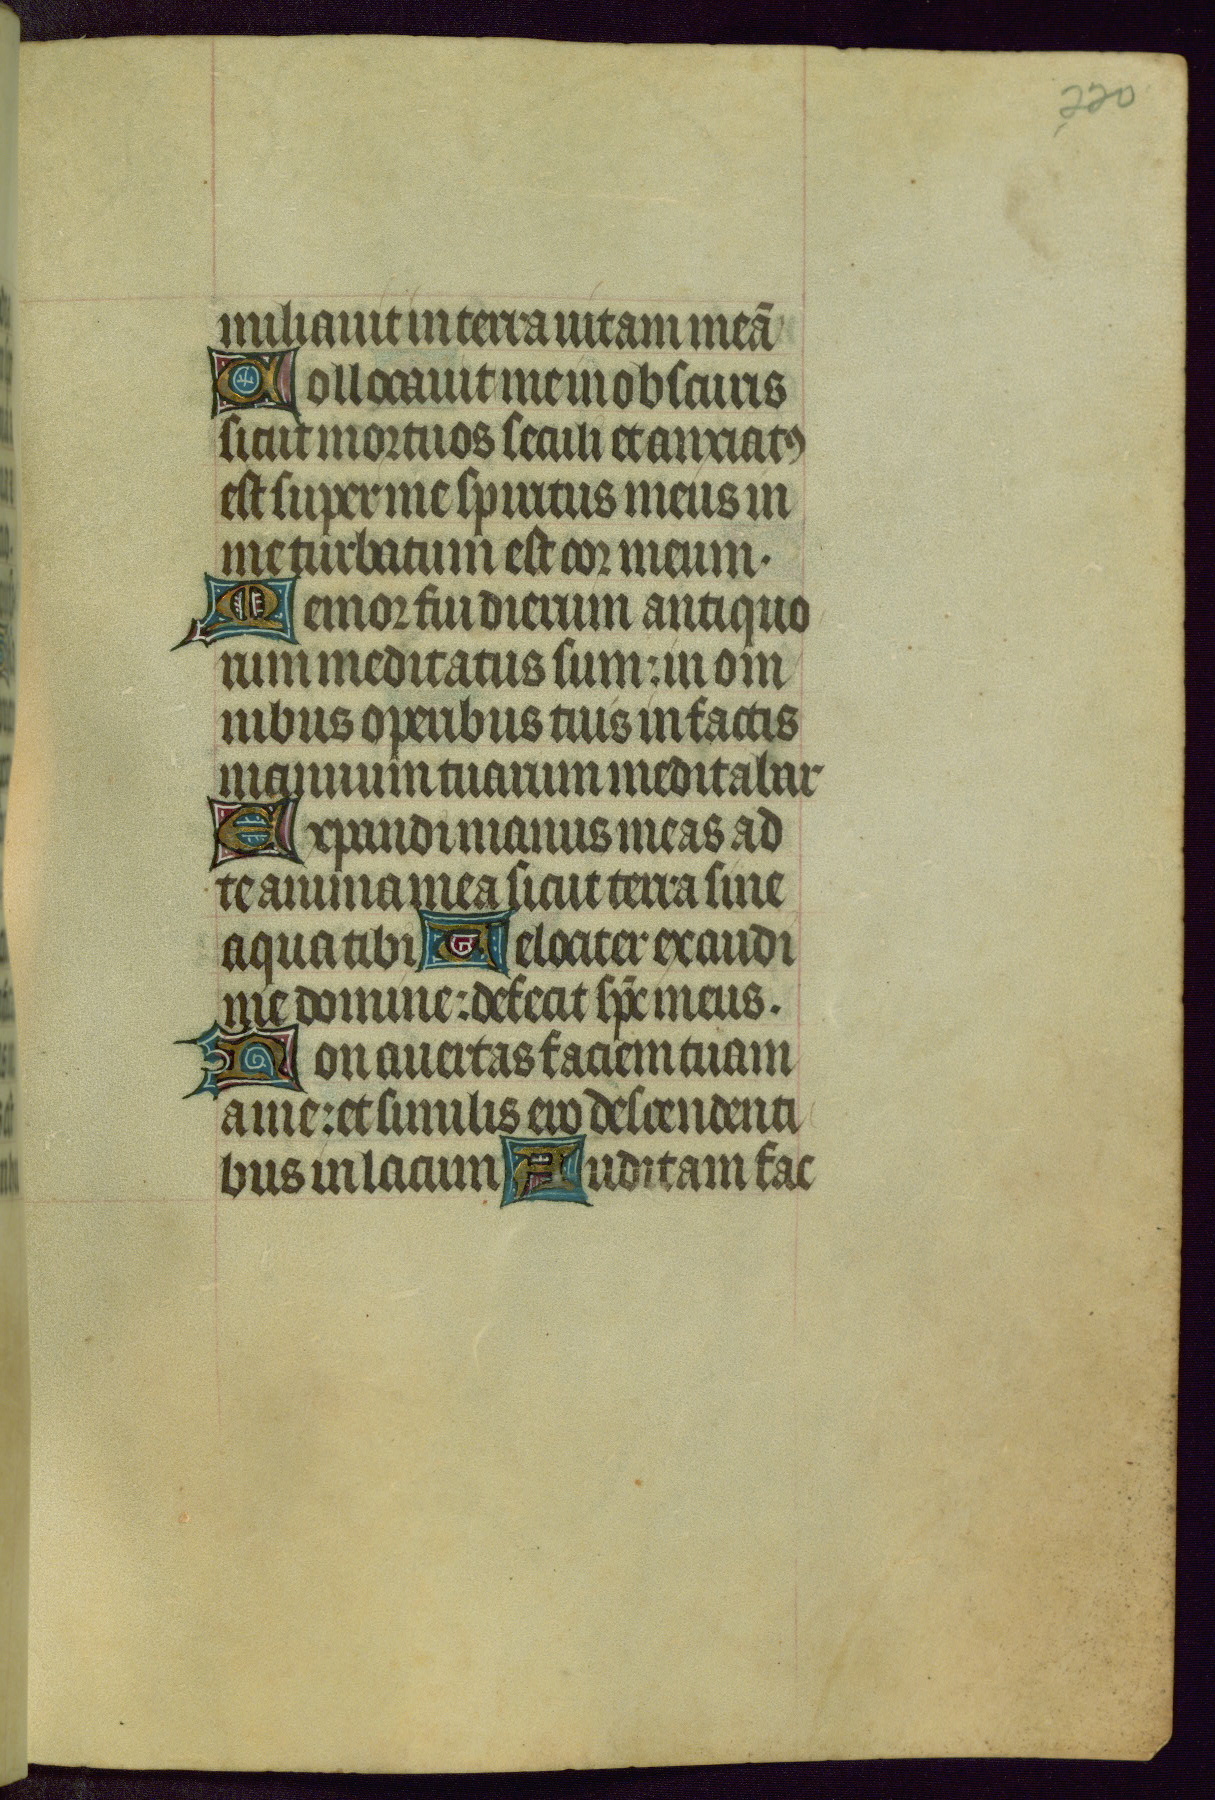 220
miliauit in terra uitam meã
Collocauit me in obscuris
sicut mortuos seculi et anxiatꝰ
est super me spiritus meus in
me turbatum est cor meum.
Memor fui dierum antiquo
rum meditatus sum: in om
nibus operibus tuis in factis
manuum tuarum meditabar
Expandi manus meas ad
te anima mea sicut terra sine
aqua tibi Uelociter exaudi
me domine: defecit sp̃c meus.
Non auertas faciem tuam
a me: et similis ero descendenti
bus in lacum Auditam fac